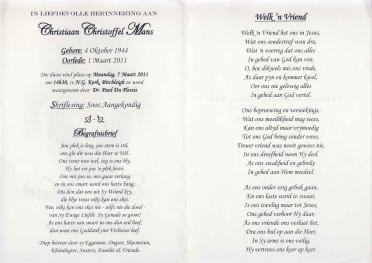 IN LIEFDEVOLLE HERINNERING AAN
Christiaan Christoffel Mans
Gebore: 4 Oktober 1944
Oorlede: 1 Maart 2011
Die diens vind plaas op Maandag, 7 Maart 2011
om 14H30, te N.G. Kerk, Birchleigh en word
waargeneem deur Dr. Paul Du Plessis
Skriflesing: Soos Aangekondig
Begrafnisbrief
Jou plek is leeg, jou stem is stil,
ons glo dit was die Heer se Wil.
Ons treur nou wel, tog is ons bly,
Hy het vir jou 'n plek berei.
Ons mis jou so, ons gaan verlang
en in ons smart word ons harte bang.
Dis dan dat ons uit Sy Woord kry,
die Hy vrou niks kan ons skei.
Nee, niks kan ons skei nie - selfs nie die dood -
van Sy Ewige Liefde Sy Genade so groot!
As ons harte van smart in ons dan wil breek,
dan weet ons Goddank ons Verlosser leef.
Diep betreur deur sy Eggenote, Dogter, Skoonseun,
Kleindogter, Susters, Familie & Vriende.
Welk 'n Vriend
Welk 'n Vriend het ons in Jesus,
Wat ons sondestraf wou dra,
Wat 'n voorreg dat ons alles
In gebed van God kan vra;
O, hoe dikwels mis ons vrede,
As daar pyn en kommer kwel,
Oor ons nie gelowig alles
In gebed aan God vertel.
Ons beproewing en versoekings,
Wat ons moeilikheid mag wees,
Kan ons altyd maar vrymoedig
Tot ons God bring sonder vrees.
Trouer vriend was nooit gewees nie,
In ons droefheid noem Hy deel.
As ons swakheid en gebreke
In gebed aan Hom meedeel.
As ons onder sorg gebuk gaan,
En ons laste word te swaar,
Is ons toevlug maar tot Jesus,
Ons gebed verhoor Hy daar;
As ons vriende ons verlaat het,
Dra ons hul op aan die Heer,
In Sy arms is ons veilig,
Hy vertroos ons keer op keer.